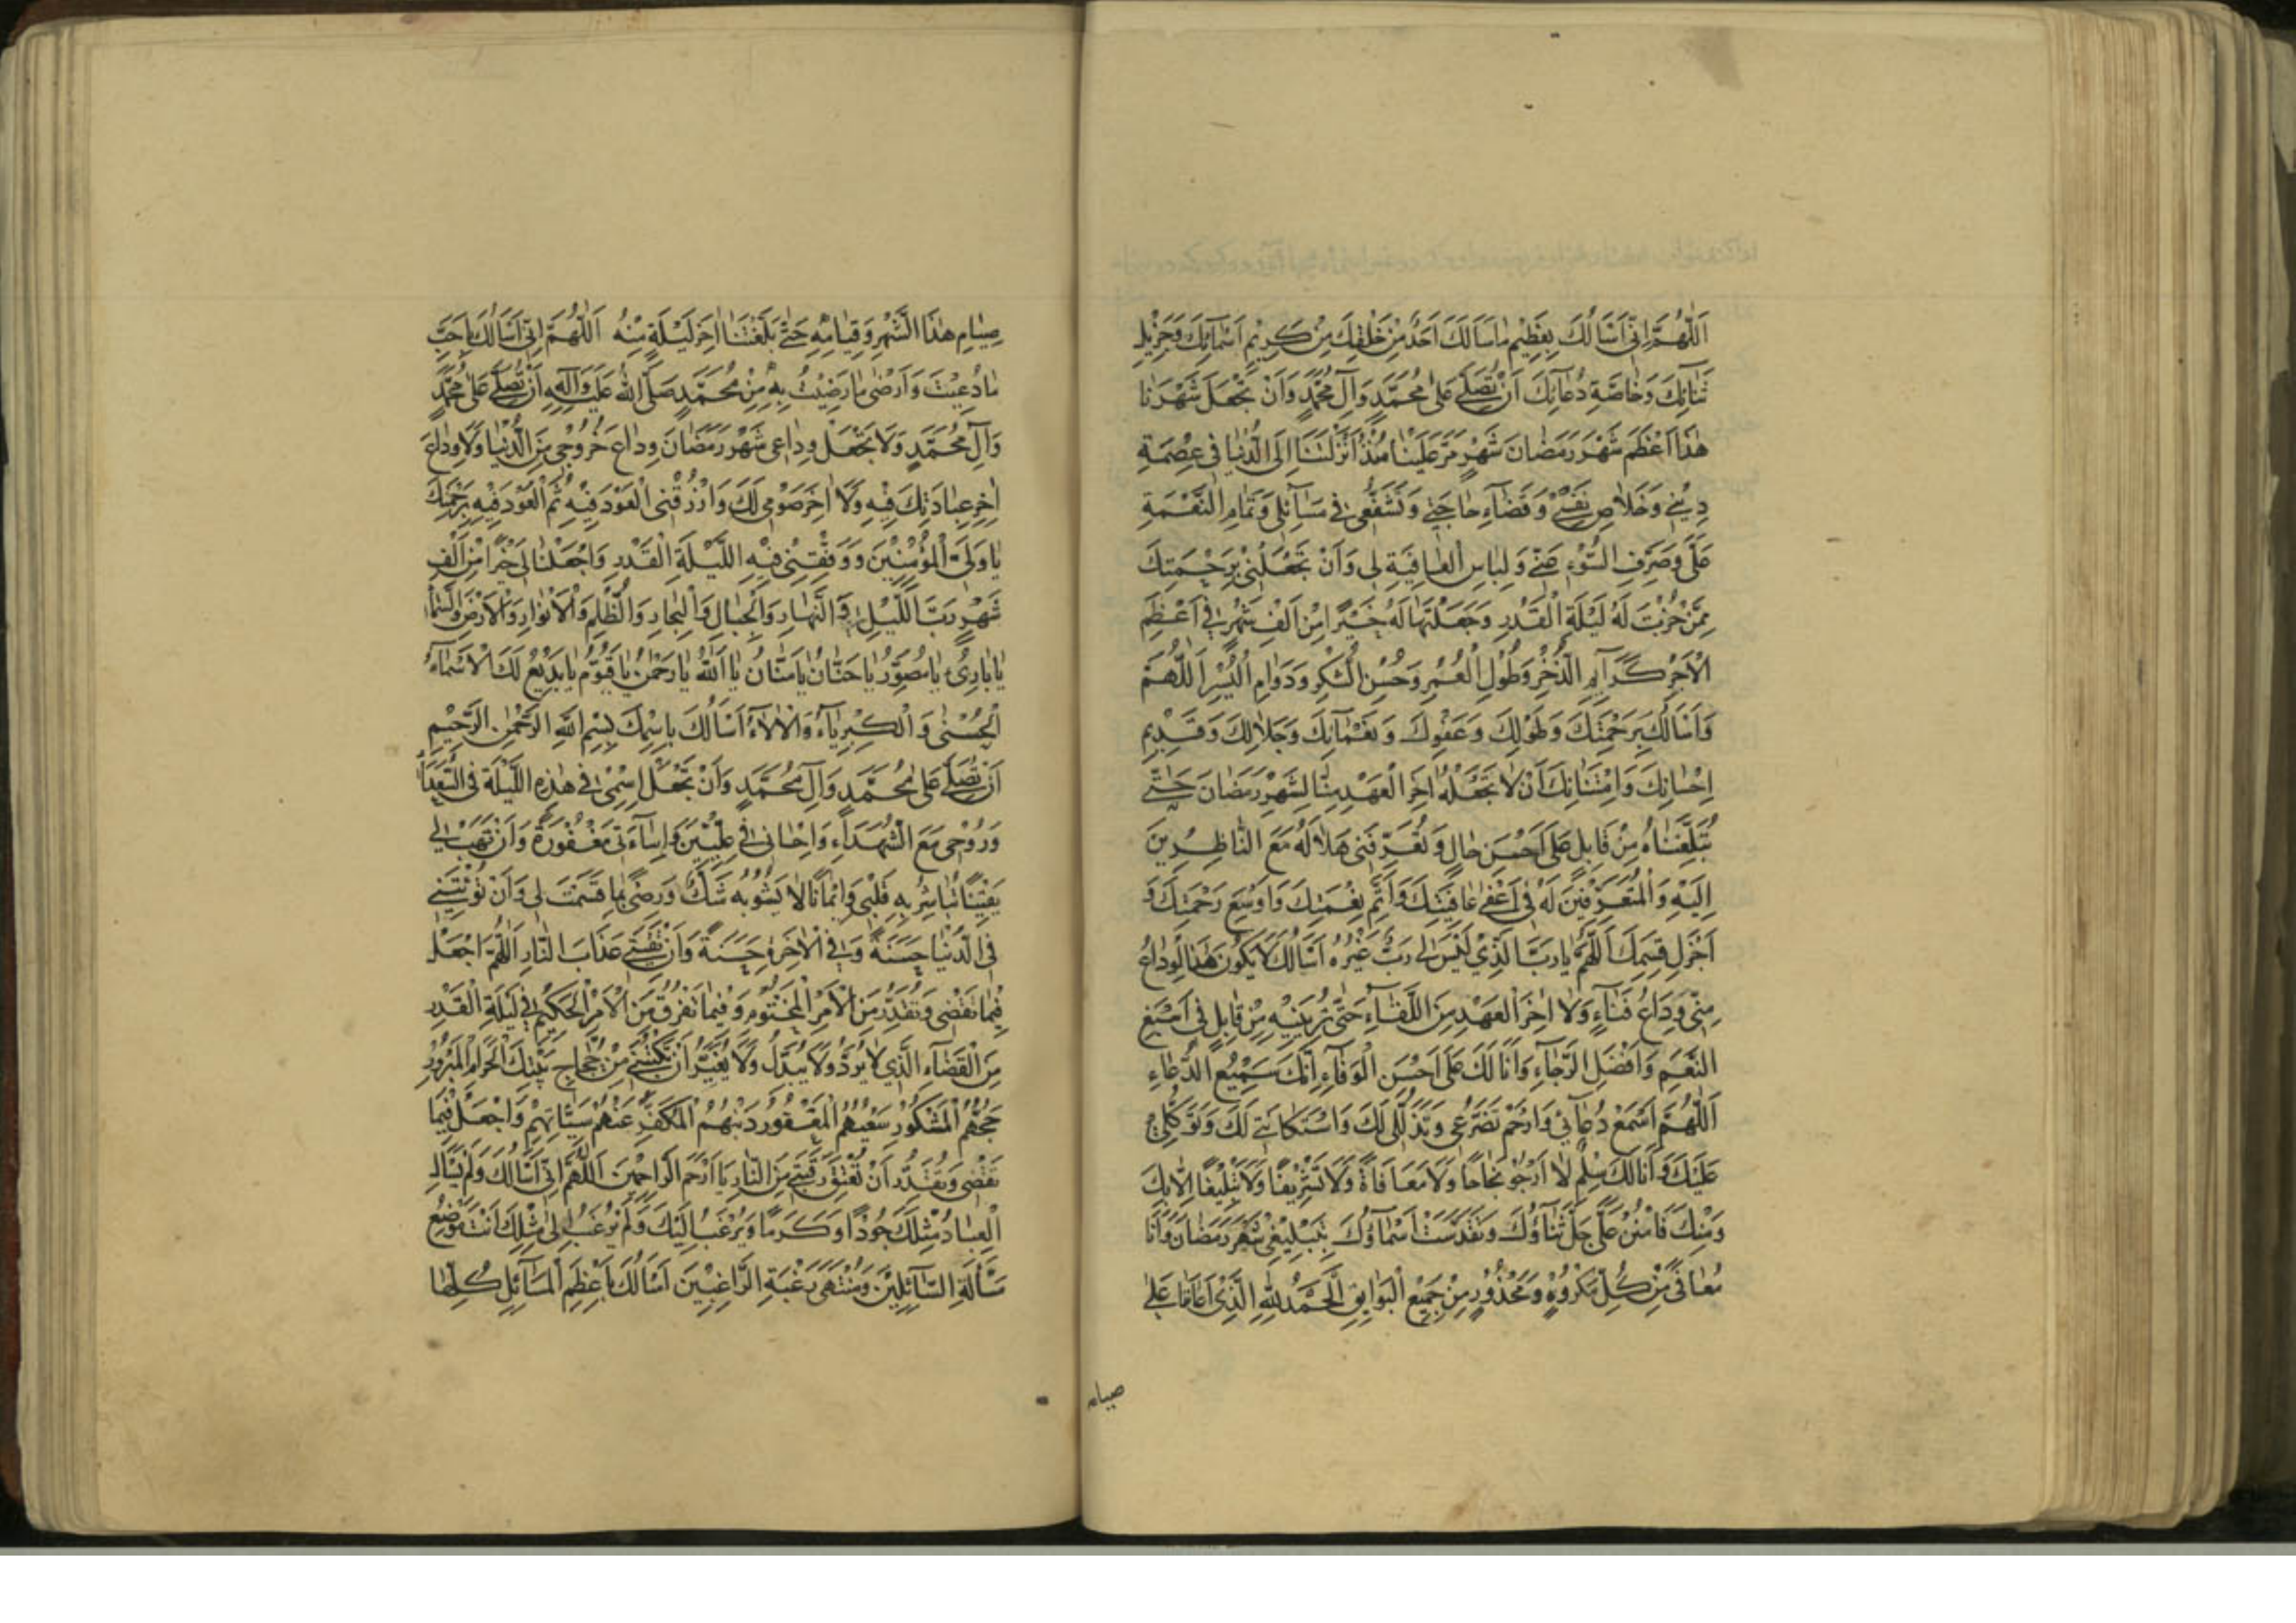 اَللّٰهُمَّ اِنّی اَسْاَلُكَ بِعَظِیْمِ مٰا سَاَلَكَ اَحَدٌ مِنْ خَلْقِكَ مِنْ كَرِیْمِ اَسْمٰآئِكَ وَجَزِیْلِ
ثَنٰائِكَ وَخٰاصَّةِ دُعٰآئِكَ اَنْ تُصَلِّیَ عَلٰی مُحَمَّدٍ وَآلِ مُحَمَّدٍ وَاَنْ تَجْعَلَ شَهْرَنٰا
هٰذٰا اَعْظَمَ شَهْرِ رَمَضٰانَ شَهْرٍ مَرَّ عَلَیْنٰا مُنْذُ اَنْزَلْتَنٰا اِلَی الدُّنْیٰا فِی عِصْمَةِ
دِیْنِی وَخَلٰاصِ نَفْسِی وَقَضٰآءِ حٰاجَتِی وَتُشَفِّعُنِی فِی مَسٰآئِلِی وَتَمٰامِ النِّعْمَةِ
عَلَیَّ وَصَرْفِ السُّوْءِ عَنِّی وَلِبٰاسِ الْعٰافِیَةِ لِی وَاَنْ تَجْعَلَنِی بِرَحْمَتِكَ
مِمَّنْ خُزْتَ لَهُ لَیْلَةَ الْقَدْرِ وَجَعَلْتَهٰا لَهُ خَیْرًا مِنْ اَلْفِ شَهْرٍ فِی اَعْظَمِ
الْاَجْرِ كَرٰآیِمِ الذُّخْرِ وَطُوْلِ الْعُمْرِ وَحُسْنِ الشُّكْرِ وَدَوٰامِ الْیُسْرِ اَللّٰهُمَّ
وَاَسْاَلُكَ بِرَحْمَتِكَ وَطَوْلِكَ وَعَفْوِكَ وَنَعْمٰآئِكَ وَجَلٰالِكَ وَقَدِیْمِ
اِحْسٰانِكَ وَامْتِنٰانِكَ اَنْ لٰا تَجْعَلَهُ اٰخِرَ الْعَهْدِ مِنّٰا لِشَهْرِ رَمَضٰانَ حَتّٰی
تُبَلِّغَنٰاهُ مِنْ قٰابِلٍ عَلٰی اَحْسَنِ حٰالٍ وَتُعَرِّفَنِی هِلٰالَهُ مَعَ النّٰاظِرِیْنَ
اِلَیْهِ وَالْمُتَعَرِّفِیْنَ لَهُ فِی اَعْفٰی عٰافِیَتِكَ وَاَتَمِّ نِعْمَتِكَ وَاَوْسَعِ رَحْمَتِكَ وَ
اَجْزَلِ قِسَمِكَ اَللّٰهُمَّ یٰا رَبَّ الَّذِی لَیْسَ لِی رَبٌّ غَیْرُهُ اَسْاَلُكَ لٰا یَكُوْنُ هٰذَا الْوِدٰاعُ
مِنِّی وِدٰاعَ فَنٰآءٍ وَلٰا اٰخِرَ الْعَهْدِ مِنَ اللِّقٰآءِ حَتّٰی تُرِیَنِیْهِ مِنْ قٰابِلٍ فِی اَسْبَغِ
النِّعَمِ وَاَفْضَلِ الرَّجٰآءِ وَاَنَا لَكَ عَلٰی اَحْسَنِ الْوَفٰآءِ اِنَّكَ سَمِیْعُ الدُّعٰاءِ
اَللّٰهُمَّ اسْمَعْ دُعٰآئِی وَارْحَمْ تَضَرُّعِی وَتَذَلُّلِی لَكَ وَاسْتِكٰانَتِی لَكَ وَتَوَكُّلِی
عَلَیْكَ وَاَنَا لَكَ سِلْمٌ لٰا اَرْجُوْ نَجٰاحًا وَلٰا مُعٰافٰاةً وَلٰا تَشْرِیْفًا وَلٰا تَبْلِیْغًا اِلّٰا بِكَ
وَمِنْكَ فَامْنُنْ عَلَیَّ جَلَّ ثَنٰاؤُكَ وَتَقَدَّسَتْ اَسْمٰاؤُكَ بِتَبْلِیْغِی شَهْرَ رَمَضٰانَ وَاَنَا
مُعٰافًی مِنْ كُلِّ مَكْرُوْهٍ وَمَحْذُوْرٍ مِنْ جَمِیْعِ الْبَوٰایِقِ اَلْحَمْدُ لِلّٰهِ الَّذِی اَعٰانَنٰا عَلٰی
صیام
صِیٰامِ هٰذَا الشَّهْرِ وَقِیٰامِهِ حَتّٰی بَلَّغَنٰا اٰخِرَ لَیْلَةٍ مِنْهُ اَللّٰهُمَّ اِنِّی اَسْاَلُكَ بِاَحَبِّ
مٰا دُعِیْتَ وَاَرْضٰی مٰا رَضِیْتَ بِهِ مِنْ مُحَمَّدٍ صَلَّی اللّٰهُ عَلَیْهِ وَآلِهِ اَنْ تُصَلِّیَ عَلٰی مُحَمَّدٍ
وَآلِ مُحَمَّدٍ وَلٰا تَجْعَلْ وِدٰاعِی شَهْرَ رَمَضٰانَ وِدٰاعَ خُرُوْجِی مِنَ الدُّنْیٰا وَلٰا وِدٰاعَ
اٰخِرِ عِبٰادَتِكَ فِیْهِ وَلٰا اٰخِرَ صَوْمِی لَكَ وَارْزُقْنِی الْعَوْدَ فِیْهِ ثُمَّ الْعَوْدَ فِیْهِ بِرَحْمَتِكَ
یٰا وَلِیَّ الْمُؤْمِنِیْنَ وَوَفِّقْنِی فِیْهِ اللَّیْلَةَ الْقَدْرِ وَاجْعَلْهٰا لِی خَیْرًا مِنْ اَلْفِ
شَهْرٍ رَبَّ اللَّیْلِ وَالنَّهٰارِ وَالْجِبٰالِ وَالْبِحٰارِ وَالظُّلَمِ وَالْاَنْوٰارِ وَالْاَرْضِ وَالسَّمٰآءِ
یٰا بٰارِئُ یٰا مُصَوِّرُ یٰا حَنّٰانُ یٰا مَنّٰانُ یٰا اَللّٰهُ یٰا رَحْمٰنُ یٰا قَیُّوْمُ یٰا بَدِیْعُ لَكَ الْاَسْمٰآءُ
الْحُسْنٰی وَالْكِبْرِیٰآءُ وَالْاٰلٰآءُ اَسْاَلُكَ بِاسْمِكَ بِسْمِ اللّٰهِ الرَّحْمٰنِ الرَّحِیْمِ
اَنْ تُصَلِّیَ عَلٰی مُحَمَّدٍ وَآلِ مُحَمَّدٍ وَاَنْ تَجْعَلَ اسْمِی فِی هٰذِهِ اللَّیْلَةِ فِی السُّعَدٰآءِ
وَرُوْحِی مَعَ الشُّهَدٰآءِ وَاِحْسٰانِی فِی عِلِّیِّیْنَ وَاِسٰآءَتِی مَغْفُوْرَةً وَاَنْ تَهَبَ لِی
یَقِیْنًا تُبٰاشِرُ بِهِ قَلْبِی وَاِیْمٰانًا لٰا یَشُوْبُهُ شَكٌّ وَرِضًی بِمٰا قَسَمْتَ لِی وَاَنْ تُؤْتِیَنِی
فِی الدُّنْیٰا حَسَنَةً وَفِی الْاٰخِرَةِ حَسَنَةً وَاَنْ تَقِیَنِی عَذٰابَ النّٰارِ اَللّٰهُمَّ اجْعَلْ
فِیْمٰا تَقْضِی وَتُقَدِّرُ مِنَ الْاَمْرِ الْمَحْتُوْمِ وَفِیْمٰا تَفْرُقُ مِنَ الْاَمْرِ الْحَكِیْمِ فِی لَیْلَةِ الْقَدْرِ
مِنَ الْقَضٰآءِ الَّذِی لٰا یُرَدُّ وَلٰا یُبَدَّلُ وَلٰا یُغَیَّرُ اَنْ تَكْتُبَنِی مِنْ حُجّٰاجِ بَیْتِكَ الْحَرٰامِ الْمَبْرُوْرِ
حَجُّهُمُ الْمَشْكُوْرِ سَعْیُهُمُ الْمَغْفُوْرِ ذَنْبُهُمُ الْمُكَفَّرِ عَنْهُمْ سَیِّئٰاتُهُمْ وَاجْعَلْ فِیْمٰا
تَقْضِی وَتُقَدِّرُ اَنْ تُعْتِقَ رَقَبَتِی مِنَ النّٰارِ یٰا اَرْحَمَ الرّٰاحِمِیْنَ اَللّٰهُمَّ اِنِّی اَسْاَلُكَ وَلَمْ یَسْاَلِ
الْعِبٰادُ مِثْلَكَ جُوْدًا وَكَرَمًا وَیُرْغَبُ اِلَیْكَ وَلَمْ یُرْغَبْ اِلٰی مِثْلِكَ اَنْتَ مَوْضِعُ
مَسْاَلَةِ السّٰآئِلِیْنَ وَمُنْتَهٰی رَغْبَةِ الرّٰاغِبِیْنَ اَسْاَلُكَ بِاَعْظَمِ الْمَسٰآئِلِ كُلِّهٰا